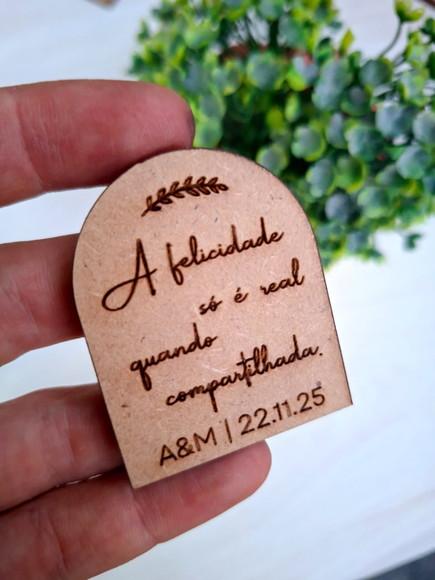 A felicidade
só é real
quando
compartilhada.
A&M | 22.11.25